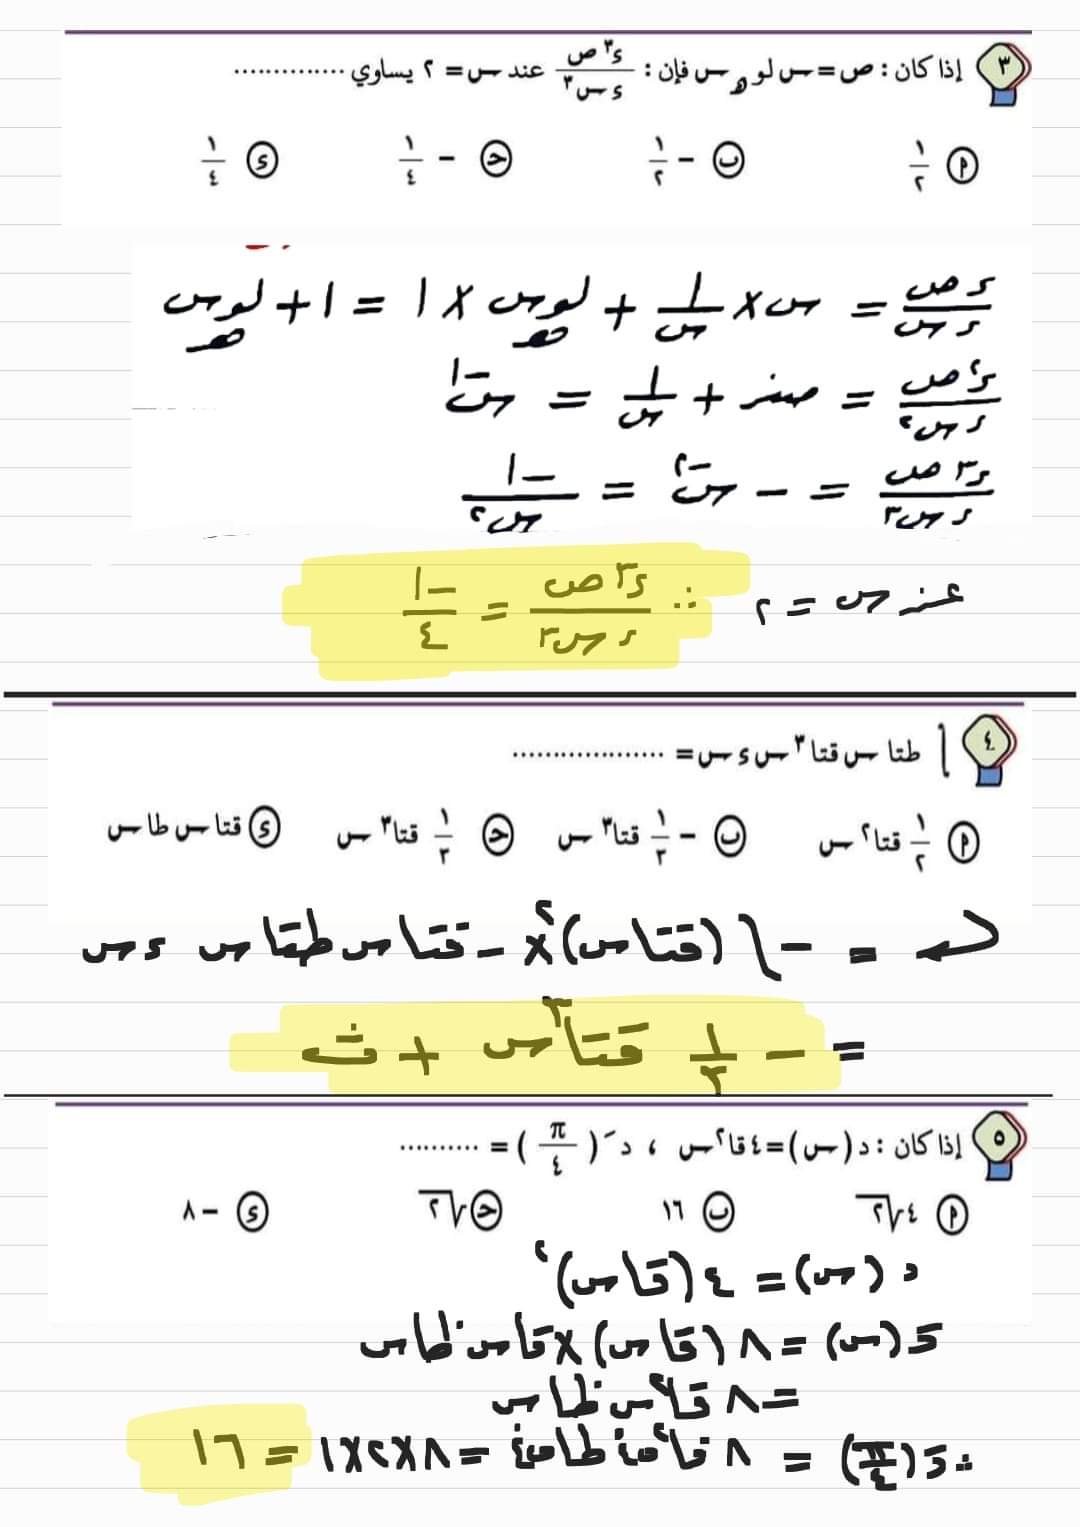 ٣ إذا كان : ص = س لو هـ س فإن : ء٣ ص / ء س٣ عند س = ٢ يساوي ..............
أ ١/٢ ب - ١/٢ ح - ١/٤ ء ١/٤
ء ص / ء س = س × ١/س + لو هـ س × ١ = ١ + لو هـ س
ء٢ ص / ء س٢ = صفر + ١/س = س^-١
ء٣ ص / ء س٣ = - س^-٢ = -١/س٢
عند س = ٢ ∴ ء٣ ص / ء س٣ = -١/٤
٤ ∫ طتا س قتا٣ س ء س = ...................
أ ١/٢ قتا٢ س ب - ١/٣ قتا٣ س ح ١/٣ قتا٣ س ء قتا س طا س
= - ∫ (قتا س)٢ × - قتا س طتا س ء س
= - ١/٣ قتا٣ س + ث
٥ إذا كان : د (س) = ٤ قا٢ س ، دَ (π/٤) = ..........
أ ٤√٢ ب ١٦ ح √٢ ء - ٨
د (س) = ٤ (قا س)٢
دَ (س) = ٨ (قا س) × قا س ظا س
= ٨ قا٢ س ظا س
∴ دَ (π/٤) = ٨ قا٢ ٤٥ ظا ٤٥ = ٨ × ٢ × ١ = ١٦